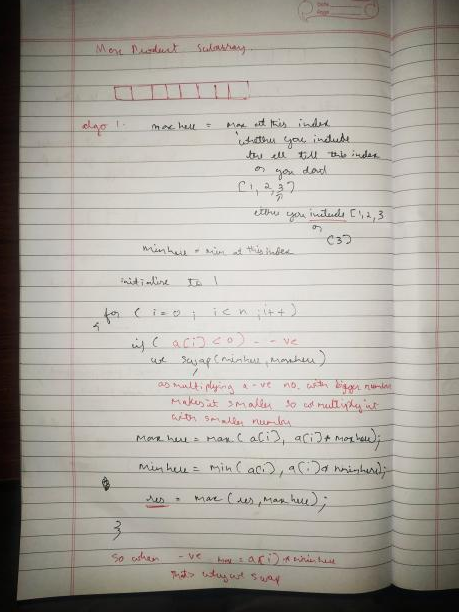 Max Product Subarray
algo 1. maxhere = max at this index
whether you include
the ell till this index
or you dont
[1, 2, 3]
either you include [1, 2, 3
or
[3]
minhere = min at this index
initialise to 1
for ( i = 0 ; i < n ; i++)
{
if ( a[i] < 0) - - ve
we swap (minhere, maxhere)
as multiplying a -ve no. with bigger number
makes it smaller so we multiply it
with smaller number
maxhere = max ( a[i], a[i] * maxhere);
minhere = min ( a[i], a[i] * minhere);
res = max (res, maxhere);
}
So when -ve max = a[i] * minhere
that's why we swap